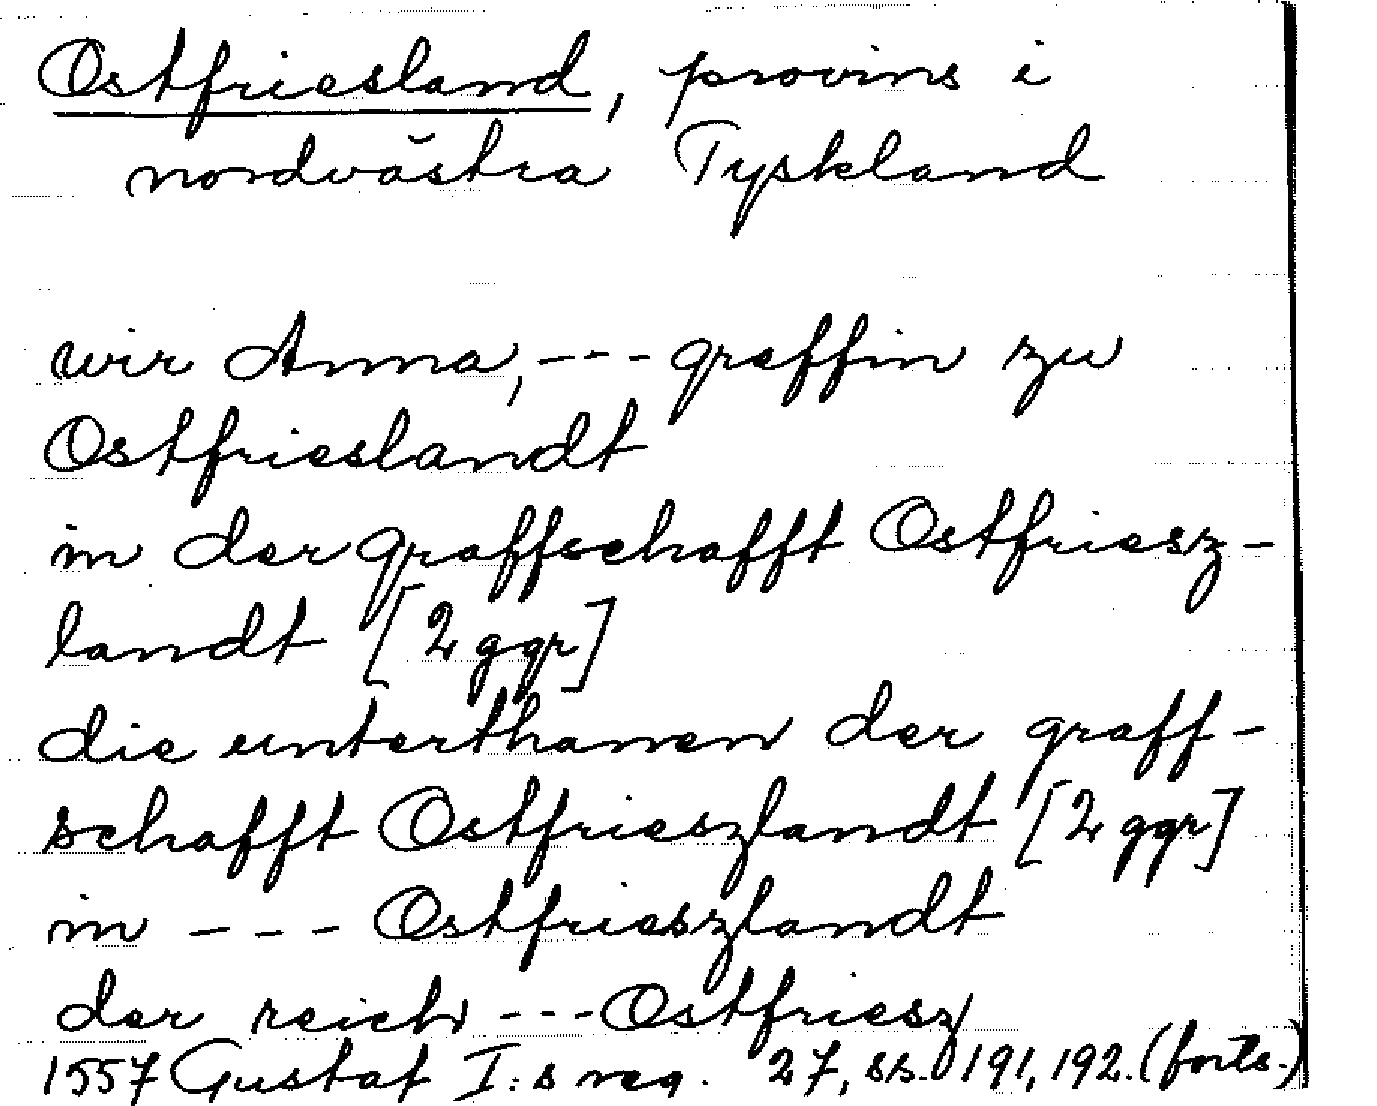 Ostfriesland, provins i
nordvästra Tyskland
wir Anna, --- greffin zu
Ostfrieslandt
in der graffschafft Ostfriesz-
landt [2 ggr]
die unterthanen der graff-
schafft Ostfrieszlandt [2 ggr]
in --- Ostfrieszlandt
der reich --- Ostfriesz
1557 Gustaf I:s reg. 27, ss. 191, 192. (forts.)